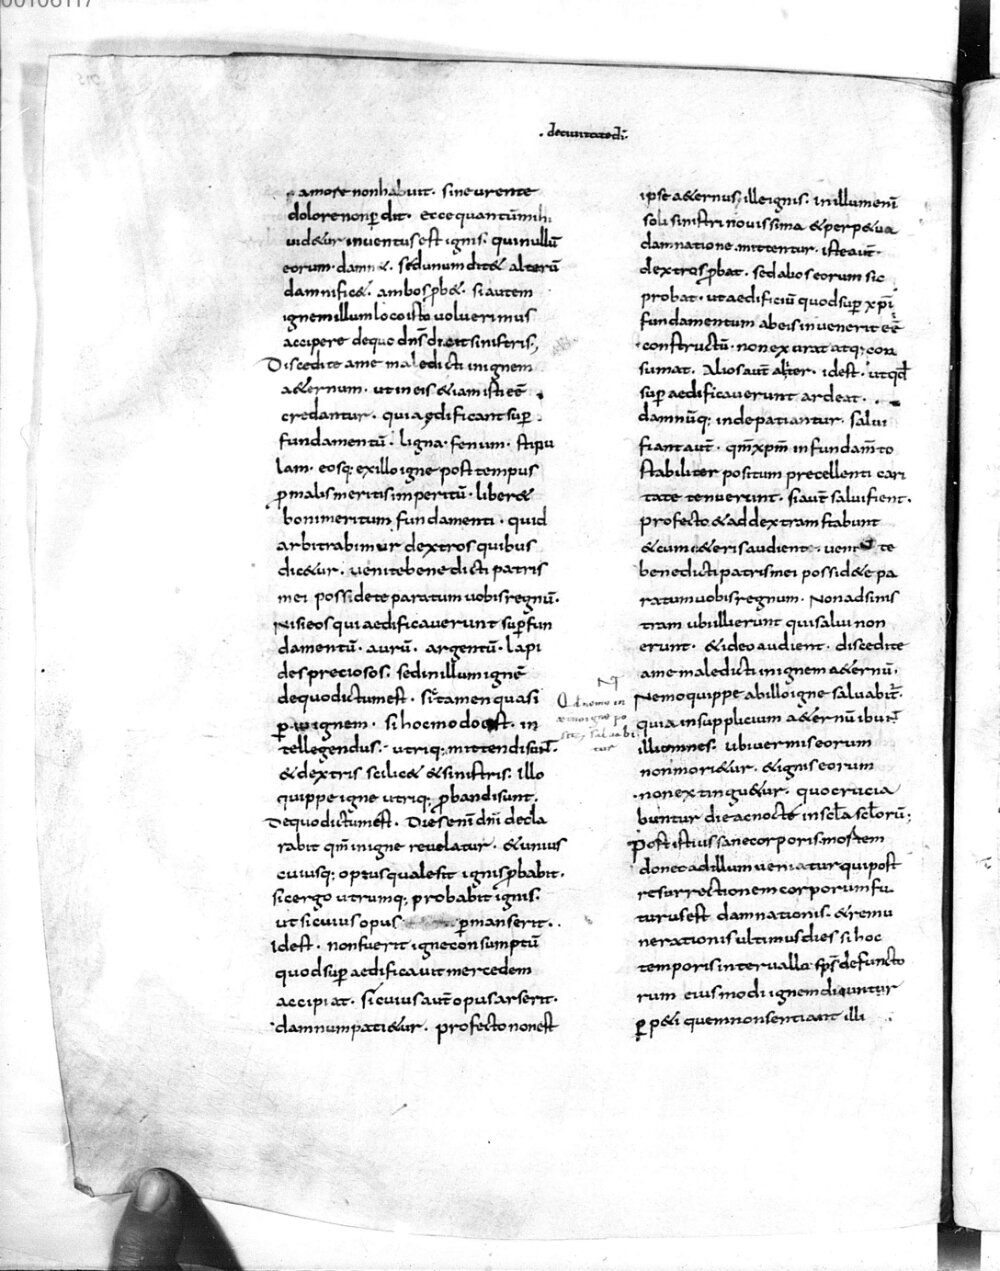 00106117
· deciuitatedi̅ ·
amore nonhabuit · sineurente
dolore non p̲dit · ecce quantu̅ mihi
uidetur inuentus est ignis · quinullu̅
eorum · damnet · sedunum ditet alteru̅
damnificet · ambos p̲bet · siautem
ignemillum locoisto uoluerimus
accipere dequo dn̅s dicit sinistris ·
Discedite ame maledicti inignem
aeternum · utineis etiam isti ee̅
credantur · quia ędificant sup̲
fundamentu̅ · ligna · fenum · stipu
lam · eosq; exilloigne post tempus
p̲ malismeritis imp̲ertitu̅ · liberet
bonimeritum fundamenti · quid
arbitrabimur dextros quibus
dicetur · uenite benedicti patris
mei possidete paratum uobis regnu̅ ·
Nisi eos qui aedificauerunt sup̲ fun
damentu̅ · auru̅ · argentu̅ · lapi
des preciosos · sedinillum igne̅
dequodictumest · sic tamen quasi
p̲ ignem · sihocmodo est · in
tellegendus · utriq; mittendi sunt̅
& dextris scilicet & sinistris · Illo
quippe igne utriq; p̲bandi sunt ·
Dequodictumest · Dies eni̅ dn̅i decla
rabit qm̅ inigne reuelatur · & unius
cuiusq; opus quale sit ignis p̲babit ·
sicergo utrumq; probabit ignis ·
ut sicuius opus p̲manserit ·
idest · nonfuerit igneconsumptu̅
quod sup̲ aedificauit mercedem
accipiat · sicuius aut̅ opus arserit ·
damnum patietur · profecto nonest
ipse aeternus; ille ignis · inillum eni̅
soli sinistri nouissima & perpetua
damnatione mittentur · iste aut̅ ·
dextros p̲bat · sedabos eorum sic
probat · utaedificiu̅ quod sup̲ xp̅i
fundamentum abeis inuenerit ee̅
constructu̅ · non exurat atq; con
sumat · Alios aut̅ aliter · idest · utqd̅
sup̲ aedificauerunt ardeat ·
damnu̅q; indepatiantur · salui
fiant aut̅ · qm̅ xpm̅ infundam̅to
stabiliter positum precellenti cari
tate tenuerunt · siaut̅ saluifient ·
profecto & addextram stabunt
& cumceteris audient · uenite
benedicti patrismei possidete pa
ratum uobis regnum · Non adsinis
tram ubi illierunt quisalui non
erunt · & ideo audient · discedite
ame maledicti inignem aeternu̅ ·
Nemo quippe abilloigne saluabit̅ ·
quia insupplicium aeternu̅ ibunt̅
illi omnes · ubi uermis eorum
nonmorietur · & ignis eorum
nonextinguetur · quo crucia
buntur die acnocte inscl̅a scl̅oru̅;
Post istius sane corporis mortem
donec adillum ueniatur qui post
resurrectionem corporum fu
turus est damnationis · & remu
nerationis ultimus dies sihoc
temporis interuallo sp̅s defuncto
rum eiusmodi ignem dicuntur
p̲peti quem non sentiant illi
Qd nemo in
aeterno igne po
situs saluabi
tur